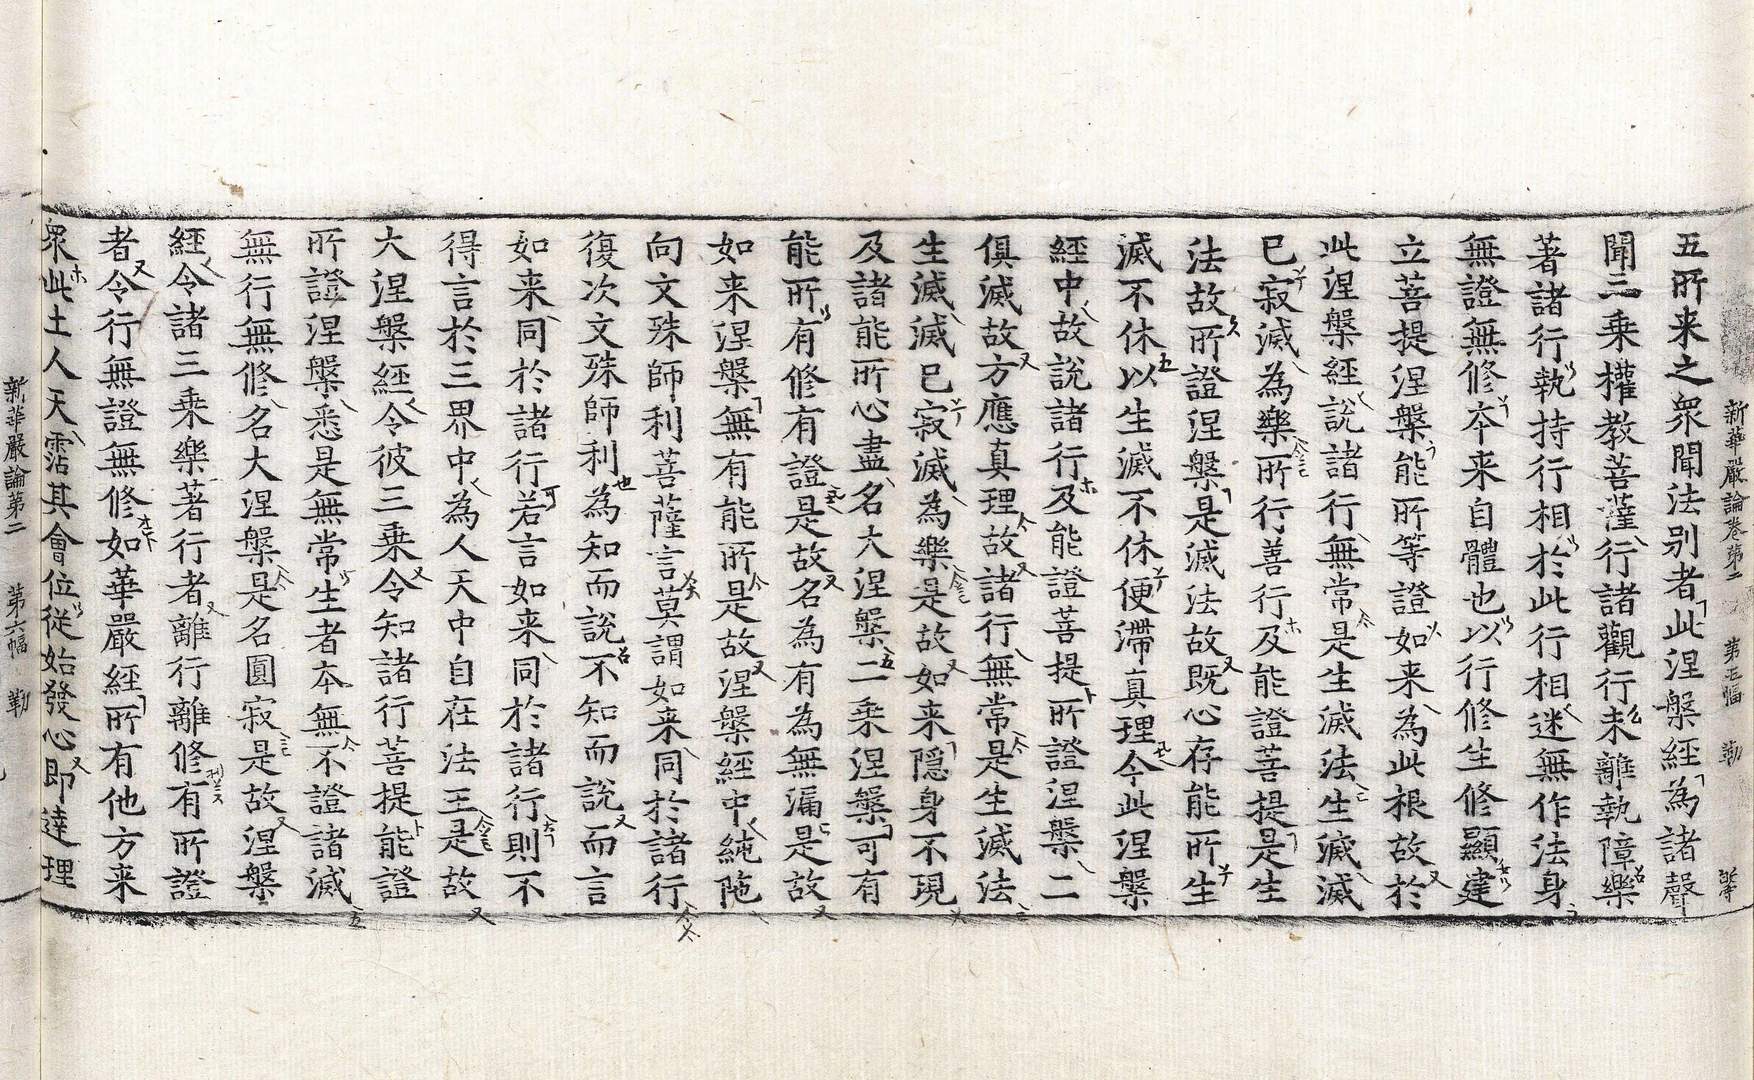 新華嚴論卷第二 第五幅 勒
五所来之衆聞法别者此涅槃經為諸聲
聞二乗權教菩薩行諸觀行未離執障樂
著諸行執持行相於此行相迷無作法身
無證無修本来自體也以行修生修顯建
立菩提涅槃能所等證如来為此根故於
此涅槃經說諸行無常是生滅法生滅滅
已寂滅為樂所行善行及能證菩提是生
法故所證涅槃是滅法故既心存能所生
滅不休以生滅不休便滯真理今此涅槃
經中故說諸行及能證菩提所證涅槃二
俱滅故方應真理故諸行無常是生滅法
生滅滅已寂滅為樂是故如来隠身不現
及諸能所心盡名大涅槃二乗涅槃可有
能所有修有證是故名為有為無漏是故
如来涅槃無有能所是故涅槃經中純陁
向文殊師利菩薩言莫謂如来同於諸行
復次文殊師利為知而說不知而說而言
如来同於諸行若言如来同於諸行則不
得言於三界中為人天中自在法王是故
大涅槃經令彼三乗令知諸行菩提能證
所證涅槃悉是無常生者本無不證諸滅
無行無修名大涅槃是名圓寂是故涅槃
經令諸三乗樂著行者離行離修有所證
者令行無證無修如華嚴經所有他方来
衆此土人天霑其會位従始發心即達理
新華嚴論第二 第六幅 勒